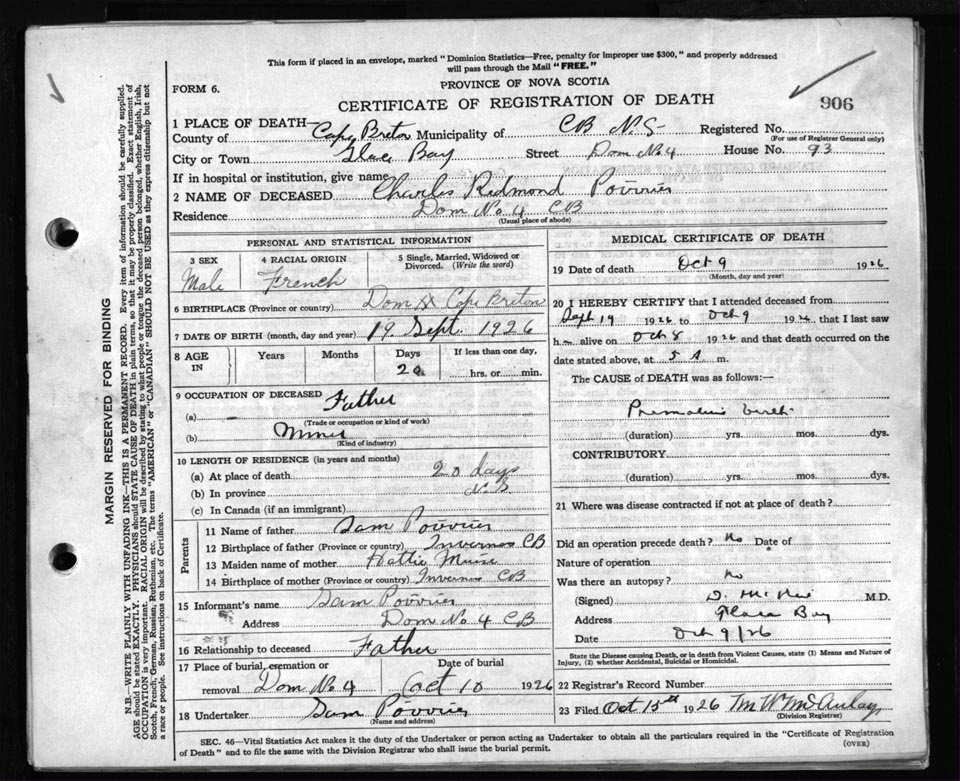 This form if placed in an envelope, marked "Dominion Statistics—Free, penalty for improper use $300," and properly addressed
will pass through the Mail "FREE."
PROVINCE OF NOVA SCOTIA
FORM 6.
CERTIFICATE OF REGISTRATION OF DEATH
906
1 PLACE OF DEATH—
County of Cape Breton Municipality of CB N.S. Registered No.
(For use of Registrar General only)
City or Town Glace Bay Street Dom No 4 House No. 93
If in hospital or institution, give name
2 NAME OF DECEASED Charles Redmond Poirrier
Residence Dom No. 4 CB
(Usual place of abode)
PERSONAL AND STATISTICAL INFORMATION
3 SEX
Male
4 RACIAL ORIGIN
French
5 Single, Married, Widowed or
Divorced. (Write the word)
6 BIRTHPLACE (Province or country) Dom Cape Breton
7 DATE OF BIRTH (month, day and year) 19 Sept. 1926
8 AGE
IN
Years Months Days
20
If less than one day,
hrs. or min.
9 OCCUPATION OF DECEASED Father
(a) —
(Trade or occupation or kind of work)
(b) Miner
(Kind of industry)
10 LENGTH OF RESIDENCE (in years and months)
(a) At place of death 20 days
(b) In province N.S
(c) In Canada (if an immigrant)
Parents
11 Name of father Sam Poirrier
12 Birthplace of father (Province or country) Inverness CB
13 Maiden name of mother Hattie Muise
14 Birthplace of mother (Province or country) Inverness CB
15 Informant's name Sam Poirrier
Address Dom No. 4 CB
16 Relationship to deceased Father
17 Place of burial, cremation or
removal Dom No. 4
Date of burial
Oct 10 1926
18 Undertaker Sam Poirrier
(Name and address)
MEDICAL CERTIFICATE OF DEATH
19 Date of death Oct 9 1926
(Month, day and year)
20 I HEREBY CERTIFY that I attended deceased from
Sept 19 1926 to Oct 9 1926, that I last saw
h m alive on Oct 8 1926 and that death occurred on the
date stated above, at 5 A m.
The CAUSE of DEATH was as follows:—
Premature birth
(duration) yrs. mos. dys.
CONTRIBUTORY
(duration) yrs. mos. dys.
21 Where was disease contracted if not at place of death?
Did an operation precede death? No Date of
Nature of operation
Was there an autopsy? No
(Signed) M.D.
Address Glace Bay
Date Oct 9/26
State the Disease causing Death, or in death from Violent Causes, state (1) Means and Nature of
Injury, (2) whether Accidental, Suicidal or Homicidal.
22 Registrar's Record Number
23 Filed Oct 15th 1926 M W McAulay
(Division Registrar)
SEC. 46—Vital Statistics Act makes it the duty of the Undertaker or person acting as Undertaker to obtain all the particulars required in the "Certificate of Registration
of Death" and to file the same with the Division Registrar who shall issue the burial permit.
(OVER)
MARGIN RESERVED FOR BINDING
N.B.—WRITE PLAINLY WITH UNFADING INK—THIS IS A PERMANENT RECORD. Every item of information should be carefully supplied.
AGE should be stated EXACTLY. PHYSICIANS should STATE CAUSE OF DEATH in plain terms, so that it may be properly classified. Exact statement of
OCCUPATION is very important. RACIAL ORIGIN will be described by stating to what people or tongue the deceased person belonged, whether English, Irish,
Scotch, French, German, Russian, Ruthenian, etc. The terms "AMERICAN" or "CANADIAN" SHOULD NOT BE USED as they express citizenship but not
a race or people. See instructions on back of Certificate.